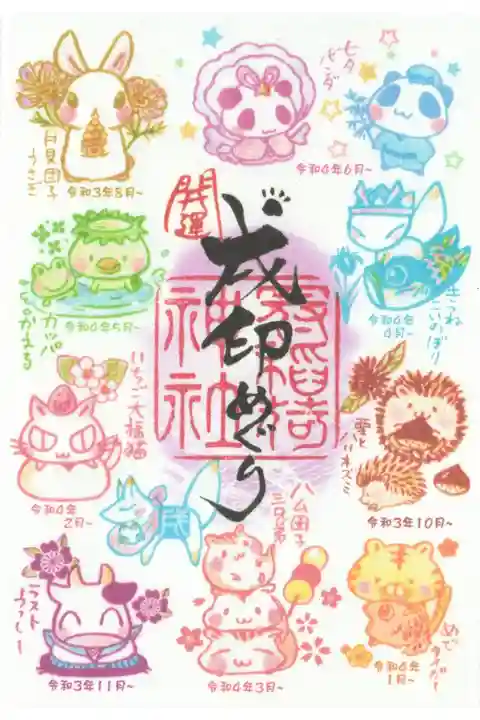 月見団子
うさぎ
令和3年8月~
七夕
パンダ
令和4年6月~
開運
戌印めぐり
神社
カッパ
のかえる
令和4年5月~
きつね
こいのぼり
令和4年
4月~
いちご大福猫
令和4年
2月~
栗と
ハリネズミ
令和3年10月~
ラスト
うっしー
令和3年11月~
ハム団子
三兄弟
令和4年3月~
めで
タイガー
令和4年
1月~